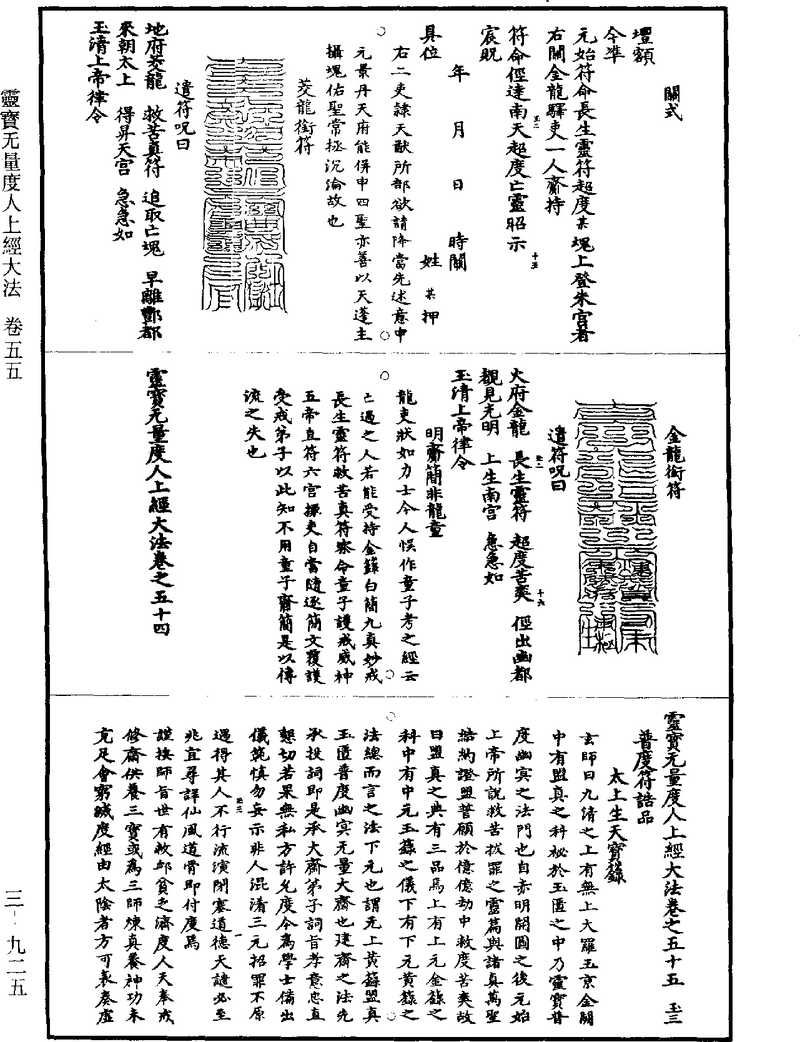 關式
壇額
今準
元始符命長生靈符超度某魂上登朱宮者
右關金龍驛吏一人齎持
符命徑達南天超度亡靈昭示
宸貺
年 月 日 時關
具位 姓 某 押
右二吏隸天猷所部欲請降當先述意申
元景丹天府能併申四聖亦善以天蓬主
攝魂佑聖常拯沉淪故也
茭龍銜符
遣符呪曰
地府茭龍 救苦真符 追取亡魂 早離酆都
來朝太上 得昇天宮 急急如
玉清上帝律令
金龍銜符
遣符呪曰
火府金龍 長生靈符 超度苦爽 徑出幽都
覩見光明 上生南宮 急急如
玉清上帝律令
明齎簡非龍童
龍吏狀如力士今人悞作童子考之經云
亡過之人若能受持金籙白簡九真妙戒
長生靈符救苦真符察命童子護戒威神
五帝直符六宮掾吏自當隨逐簡文覆護
受戒弟子以此知不用童子齎簡是以傳
流之失也
靈寶无量度人上經大法卷之五十四
靈寶无量度人上經大法卷之五十五 玉三
普度符誥品
太上生天寶籙
玄師曰九清之上有無上大羅玉京金闕
中有盟真之科祕於玉匱之中乃靈寶普
度幽冥之法門也自赤明開圖之後元始
上帝所說救苦拔罪之靈篇與諸真萬聖
結納證盟誓願於億億劫中救度苦爽故
曰盟真之典有三品焉上有上元金籙之
科中有中元玉籙之儀下有下元黃籙之
法總而言之法下元也謂无上黃籙盟真
玉匱普度幽冥无量大齋也建齋之法先
承投詞即是承大齋弟子詞旨孝意忠直
懇切若果無私方許允度今為學士備出
儀範慎勿妄示非人混淆三元招罪不原
遇得其人不行流演閉塞道德天譴必至
兆宜尋譯仙風道骨即付度焉
謹按師旨世有救邱貧乏濟度人天奉戒
修齋供養三寶或為三師煉真養神功未
充足會窮滅度經由太陰者方可表奏虛
靈寶无量度人上經大法 卷五五
三-九二五